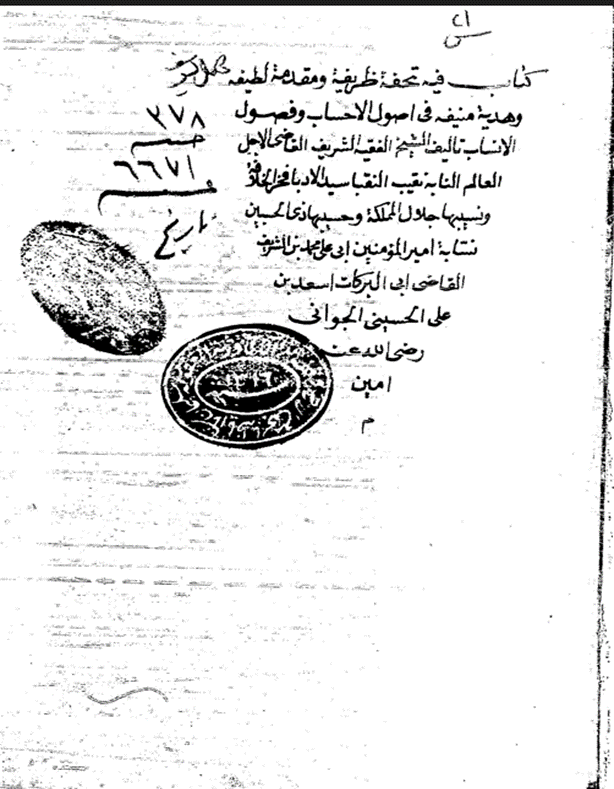 ٢١
س
كتاب فيه تحفة ظريفة ومقدمة لطيفه
وهدية منيفه فى اصول الاحساب وفصول
٣٧٨
الانساب تاليف الشيخ الفقيه الشريف القاضى الاجل
العالم النابه نقيب النقبا سيد الادبا فخر الخلافة
٦٦٧١
ونسيبها جلال المملكة وحسيبها ذى الحسبين
تاريخ
نسابة امير المؤمنين ابى على محمد بن الشريف
القاضى ابى البركات اسعد بن
على الحسينى الجوانى
رضى الله عنه
امين
م